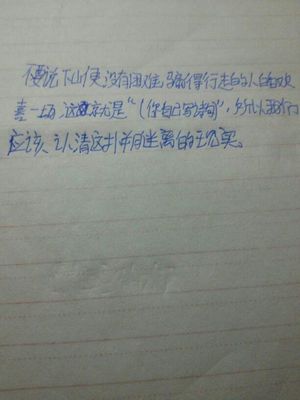 不要说下山便没有困难,骗得行走的人白白欢
喜一场,这就是“(你自己写诗词)”,所以我们
应该、认清这扑朔迷离的现实。